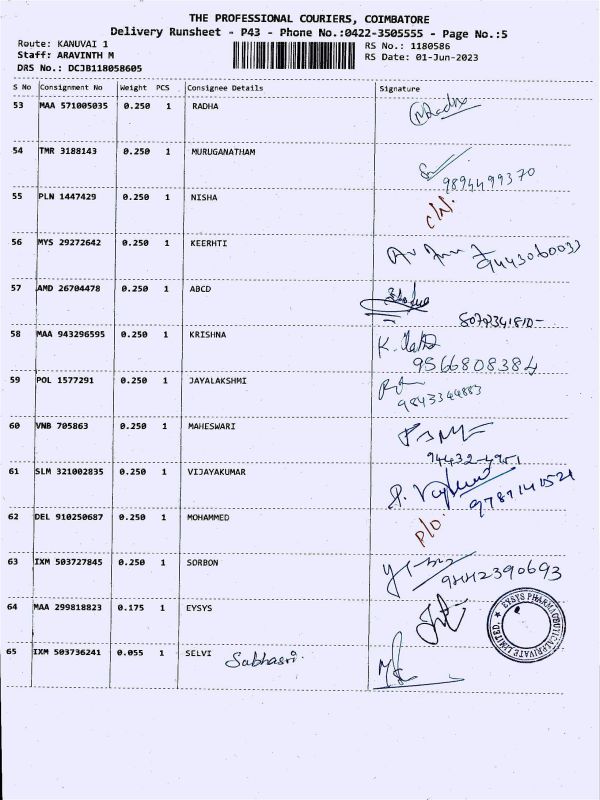 THE PROFESSIONAL COURIERS, COIMBATORE
Delivery Runsheet - P43 - Phone No.:0422-3505555 - Page No.:5
Route: KANUVAI 1
RS No.: 1180586
Staff: ARAVINTH M
RS Date: 01-Jun-2023
DRS No.: DCJB118058605
S No Consignment No Weight PCS Consignee Details Signature
53 MAA 571005035 0.250 1 RADHA Radha
54 TMR 3188143 0.250 1 MURUGANATHAM
9894499370
55 PLN 1447429 0.250 1 NISHA
56 MYS 29272642 0.250 1 KEERHTI
9443060033
57 AMD 26704478 0.250 1 ABCD
58 MAA 943296595 0.250 1 KRISHNA
9566808384
59 POL 1577291 0.250 1 JAYALAKSHMI
9843344883
60 VNB 705863 0.250 1 MAHESWARI
61 SLM 321002835 0.250 1 VIJAYAKUMAR
9787141521
62 DEL 910250687 0.250 1 MOHAMMED P/O
63 IXM 503727845 0.250 1 SORBON
9442390693
64 MAA 299818823 0.175 1 EYSYS
EYSYS PHARMACEUTICAL PRIVATE LIMITED.
65 IXM 503736241 0.055 1 SELVI Sabhasri